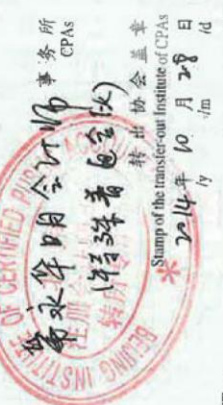 安永华明会计师 事务所
CPAs
(特殊普通合伙)
转出协会盖章
Stamp of the transfer-out Institute of CPAs
2014年 10月 28日
/y /m /d
BEIJING INSTITUTE OF CERTIFIED PUBLIC